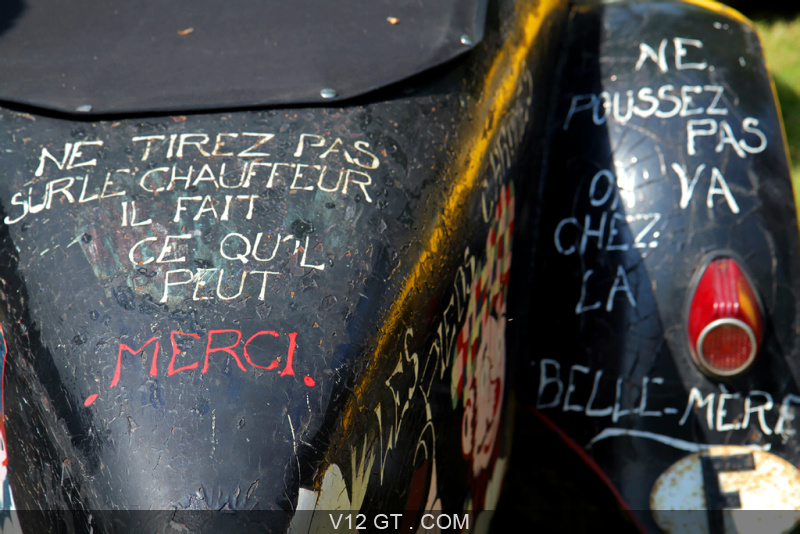 NE TIREZ PAS
SUR LE CHAUFFEUR
IL FAIT
CE QU'IL
PEUT
MERCI.
LES
PIEDS
NE
POUSSEZ
PAS
ON VA
CHEZ
LA
BELLE-MÈRE
F
V12 GT . COM